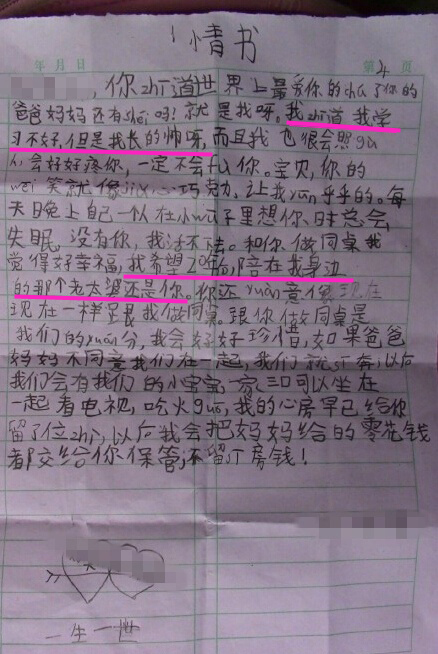 情书
年 月 日 第 4 页
，你zhī道世界上最爱你的chú了你的
爸爸妈妈还有shéi吗！就是我呀。我zhī道我学
习不好，但是我长的帅呀，而且我也很会照gù
人，会好好疼你，一定不会fù你。宝贝，你的
wēi笑就像jiā心巧克力，让我yūn乎乎的。每
天晚上自己一人在小wū子里想你，日寸总会
失眠，没有你，我活不
和你做同桌我
觉得好幸福，我希望20年后，陪在我身边
的那个老太婆还是你。你还yuàn意像现在
现在一样足艮我做同桌。跟你做同桌是
我们的yuán分，我会好好珍惜，如果爸爸
妈妈不同意我们在一起，我们就
奔，以后
我们会有我们的小宝宝，一家三口可以坐在
一起看电视，吃火guō，我的心房早已给你
留了位zhì，以后我会把妈妈给的零花钱
都交给你保管，不留
房钱！
一生一世